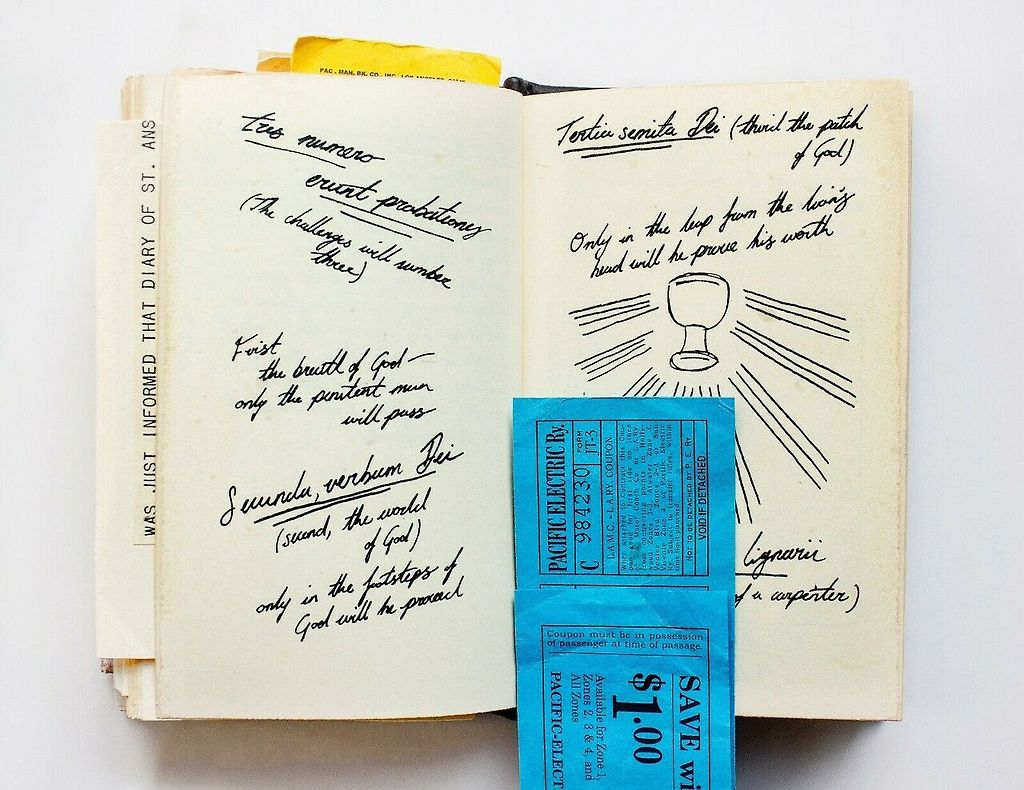 PAC. MAN. BK. CO., INC. LOS ANGELES
WAS JUST INFORMED THAT DIARY OF ST. ANS
tres numero
erunt probationes
(The challenges will number
three)
First
the breath of God—
only the penitent man
will pass
Secunda, verbum Dei
(second, the world
of God)
only in the footsteps of
God will he proceed
Tertia semita Dei (thrid the patch
of God)
Only in the leap from the lion's
head will he prove his worth
lignarii
of a carpenter)
PACIFIC ELECTRIC Ry.
C 984230 FORM JT-3
L.A.M.C.-L.A.RY. COUPON
NOT TO BE DETACHED BY P. E. RY.
VOID IF DETACHED
Coupon must be in possession
of passenger at time of passage.
SAVE wi
$1.00
Available for Zone 1,
Zones 2, 3 & 4, and
All Zones
PACIFIC-ELECT